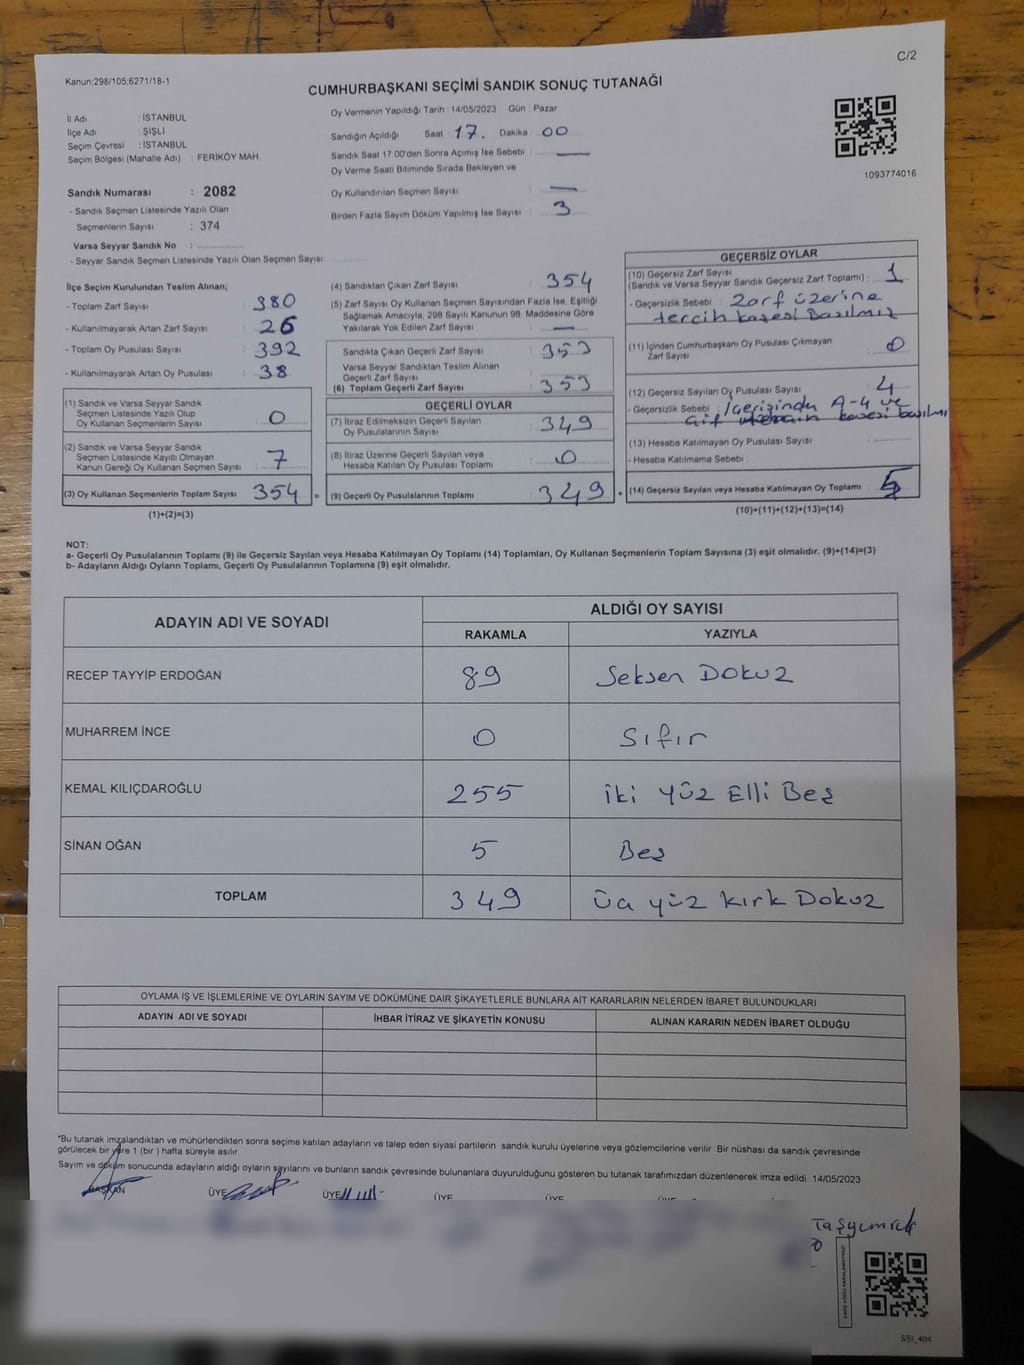 C/2
Kanun;298/105;6271/18-1
CUMHURBAŞKANI SEÇİMİ SANDIK SONUÇ TUTANAĞI
İl Adı : İSTANBUL
İlçe Adı : ŞİŞLİ
Seçim Çevresi : İSTANBUL
Seçim Bölgesi (Mahalle Adı) : FERİKÖY MAH.
Oy Vermenin Yapıldığı Tarih : 14/05/2023 Gün : Pazar
Sandığın Açıldığı Saat 17. Dakika 00
Sandık Saat 17:00'den Sonra Açımış İse Sebebi : —
Oy Verme Saati Bitiminde Sırada Bekleyen ve
Oy Kullandırılan Seçmen Sayısı : —
Birden Fazla Sayım Döküm Yapılmış İse Sayısı : 3
1093774016
Sandık Numarası : 2082
- Sandık Seçmen Listesinde Yazılı Olan
Seçmenlerin Sayısı : 374
Varsa Seyyar Sandık No :
- Seyyar Sandık Seçmen Listesinde Yazılı Olan Seçmen Sayısı:
İlçe Seçim Kurulundan Teslim Alınan;
- Toplam Zarf Sayısı : 380
- Kullanılmayarak Artan Zarf Sayısı : 26
- Toplam Oy Pusulası Sayısı : 392
- Kullanılmayarak Artan Oy Pusulası : 38
(1) Sandık ve Varsa Seyyar Sandık
Seçmen Listesinde Yazılı Olup
Oy Kullanan Seçmenlerin Sayısı : 0
(2) Sandık ve Varsa Seyyar Sandık
Seçmen Listesinde Kayıtlı Olmayan
Kanun Gereği Oy Kullanan Seçmen Sayısı : 7
(3) Oy Kullanan Seçmenlerin Toplam Sayısı 354 =
(1)+(2)=(3)
(4) Sandıktan Çıkan Zarf Sayısı : 354
(5) Zarf Sayısı Oy Kullanan Seçmen Sayısından Fazla İse, Eşitliği
Sağlamak Amacıyla, 298 Sayılı Kanunun 98. Maddesine Göre
Yakılarak Yok Edilen Zarf Sayısı : —
Sandıkta Çıkan Geçerli Zarf Sayısı : 353
Varsa Seyyar Sandıktan Teslim Alınan
Geçerli Zarf Sayısı
(6) Toplam Geçerli Zarf Sayısı : 353
GEÇERLİ OYLAR
(7) İtiraz Edilmeksizin Geçerli Sayılan
Oy Pusulalarının Sayısı : 349
(8) İtiraz Üzerine Geçerli Sayılan veya
Hesaba Katılan Oy Pusulası Toplamı : 0
(9) Geçerli Oy Pusulalarının Toplamı : 349 +
GEÇERSİZ OYLAR
(10) Geçersiz Zarf Sayısı
(Sandık ve Varsa Seyyar Sandık Geçersiz Zarf Toplamı) : 1
- Geçersizlik Sebebi : Zarf üzerine
tercih kaşesi Basılmış
(11) İçinden Cumhurbaşkanı Oy Pusulası Çıkmayan
Zarf Sayısı : 0
(12) Geçersiz Sayılan Oy Pusulası Sayısı : 4
- Geçersizlik Sebebi : İçerisinden A-4 ve
kaşesi basılmı
(13) Hesaba Katılmayan Oy Pusulası Sayısı :
- Hesaba Katılmama Sebebi :
(14) Geçersiz Sayılan veya Hesaba Katılmayan Oy Toplamı : 5
(10)+(11)+(12)+(13)=(14)
NOT:
a- Geçerli Oy Pusulalarının Toplamı (9) ile Geçersiz Sayılan veya Hesaba Katılmayan Oy Toplamı (14) Toplamları, Oy Kullanan Seçmenlerin Toplam Sayısına (3) eşit olmalıdır. (9)+(14)=(3)
b- Adayların Aldığı Oyların Toplamı, Geçerli Oy Pusulalarının Toplamına (9) eşit olmalıdır.
ADAYIN ADI VE SOYADI ALDIĞI OY SAYISI
RAKAMLA YAZIYLA
RECEP TAYYİP ERDOĞAN 89 Seksen Dokuz
MUHARREM İNCE 0 Sıfır
KEMAL KILIÇDAROĞLU 255 iki yüz Elli Beş
SİNAN OĞAN 5 Beş
TOPLAM 349 Üç yüz kırk Dokuz
OYLAMA İŞ VE İŞLEMLERİNE VE OYLARIN SAYIM VE DÖKÜMÜNE DAİR ŞİKAYETLERLE BUNLARA AİT KARARLARIN NELERDEN İBARET BULUNDUKLARI
ADAYIN ADI VE SOYADI İHBAR İTİRAZ VE ŞİKAYETİN KONUSU ALINAN KARARIN NEDEN İBARET OLDUĞU
*Bu tutanak imzalandıktan ve mühürlendikten sonra seçime katılan adayların ve talep eden siyasi partilerin sandık kurulu üyelerine veya gözlemcilerine verilir. Bir nüshası da sandık çevresinde
görülecek bir yere 1 (bir) hafta süreyle asılır.
Sayım ve döküm sonucunda adayların aldığı oyların sayılarını ve bunların sandık çevresinde bulunanlara duyurulduğunu gösteren bu tutanak tarafımızdan düzenlenerek imza edildi. 14/05/2023
BAŞKAN ÜYE ÜYE ÜYE ÜYE
SSI_404